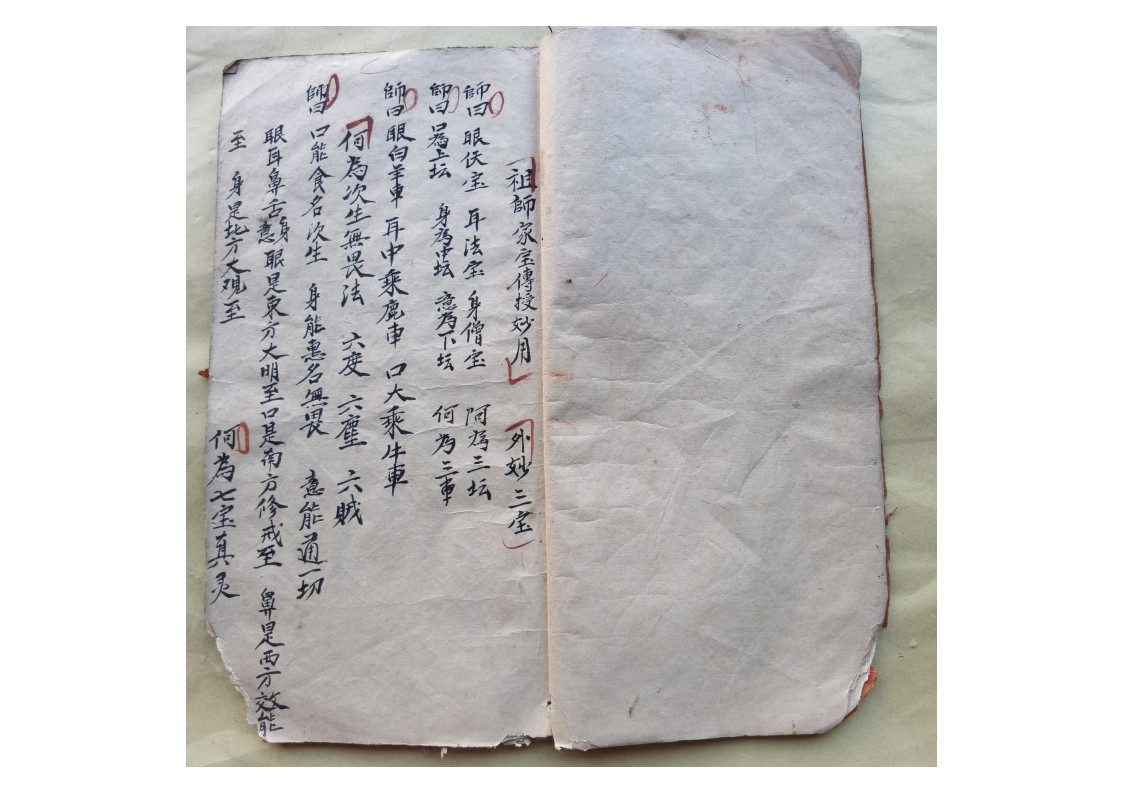 祖師家宝傳授妙月 外妙三宝
師曰 眼仸宝 耳法宝 身僧宝 阿為三坛
師曰 口為上坛 身為中坛 意為下坛 何為三車
師曰 眼白羊車 耳中乘鹿車 口大乘牛車
何為次生無畏法 六度 六塵 六賊
師曰 口能食名次生 身能惠名無畏 意能通一切
眼耳鼻舌身意 眼是東方大明至 口是南方修戒至 鼻是西方效能
至 身是北方大观至 何為七宝真灵